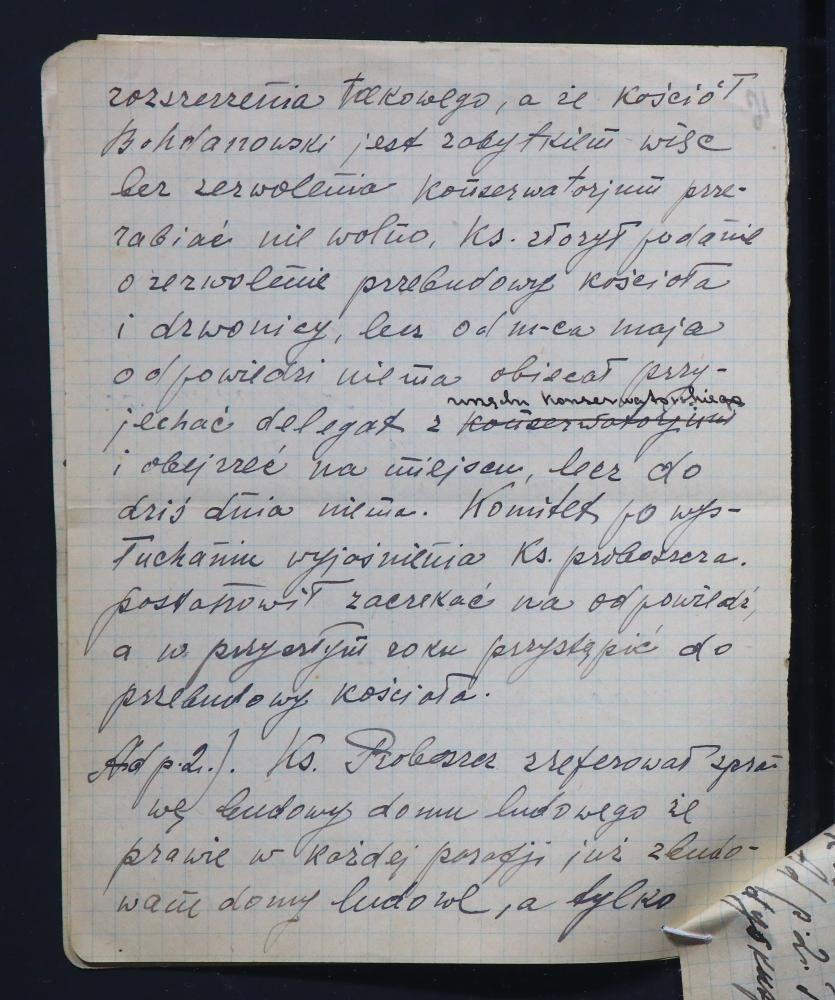 rozszerzenia takowego, a że kościół
Bohdanowski jest zabytkiem więc
bez zezwolenia konserwatorjum prze-
rabiać nie wolno, Ks. złożył podanie
o zezwolenie przebudowy kościoła
i dzwonicy, lecz od m-ca maja
odpowiedzi niema obiecał przy-
urzędu konserwatorskiego
jechać delegat z konserwatorjum
i obejrzeć na miejscu, lecz do
dziś dnia niema. Komitet po wys-
łuchaniu wyjaśnienia Ks. proboszcza.
postanowił zaczekać na odpowiedź,
a w przyszłym roku przystąpić do
przebudowy kościoła.
Ad p.2.). Ks. Proboszcz zreferował spra-
wę budowy domu ludowego że
prawie w każdej parafji już zbudo-
wane domy ludowe, a tylko
p.2.